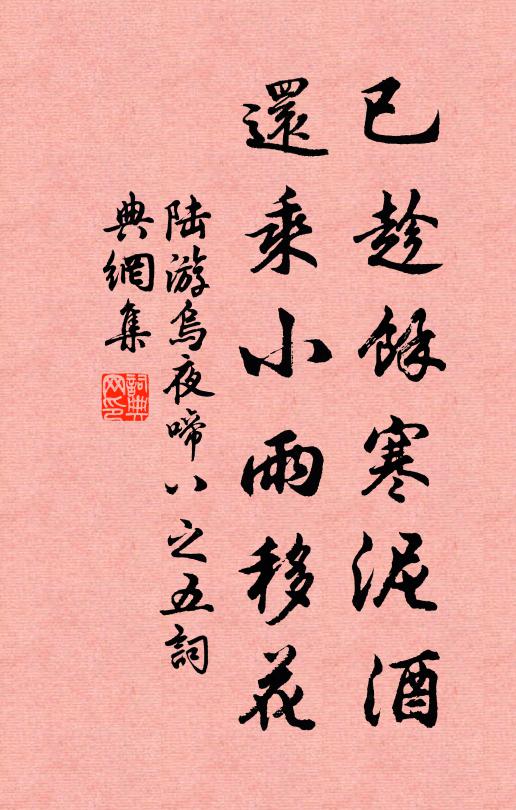 已趁餘寒泥酒
還乘小雨移花
陆游烏夜啼八之五詞
典網集
詞典网印